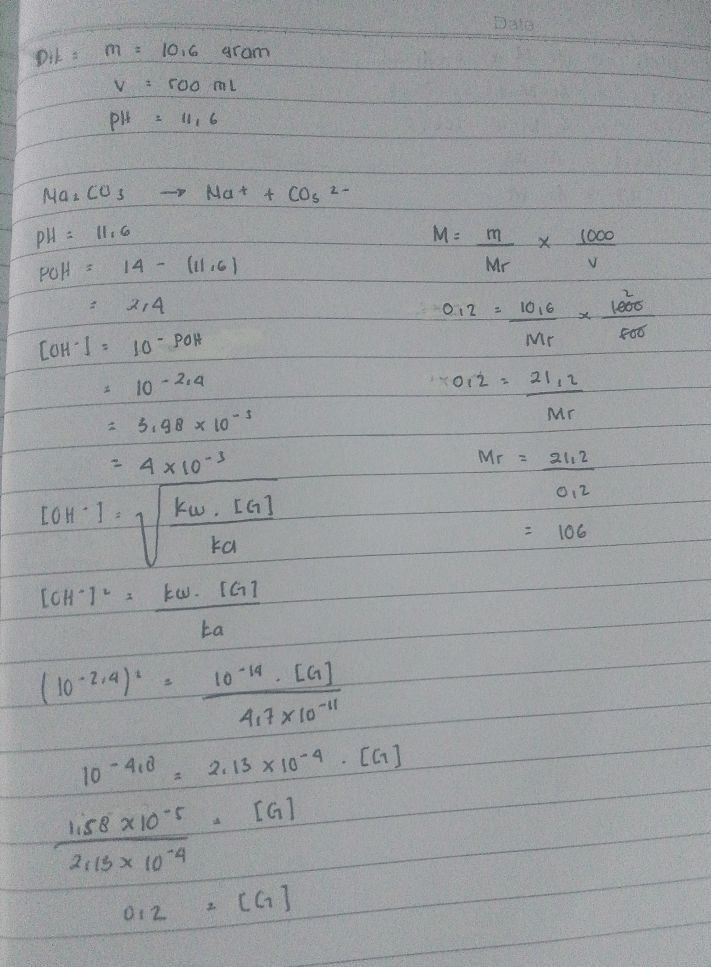 Date
Dik = m = 10,6 gram
V = 500 mL
pH = 11,6
Na₂CO₃ → Na+ + CO₃ ²⁻
pH = 11,6
POH = 14 - (11,6)
= 2,4
[OH⁻] = 10⁻ ᴾᴼᴴ
= 10 ⁻²,⁴
= 3,98 × 10⁻³
= 4 × 10⁻³
[OH⁻] = √ kw . [G] / ka
[OH⁻]² = kw . [G] / ka
(10⁻²,⁴)² = 10⁻¹⁴ . [G] / 4,7 × 10⁻¹¹
10⁻⁴,⁸ = 2.13 × 10⁻⁴ . [G]
1,58 × 10⁻⁵ / 2,13 × 10⁻⁴ = [G]
0,2 = [G]
M = m / Mr × 1000 / V
0,2 = 10,6 / Mr × 1000 2 / 500
0,2 = 21,2 / Mr
Mr = 21,2 / 0,2
= 106